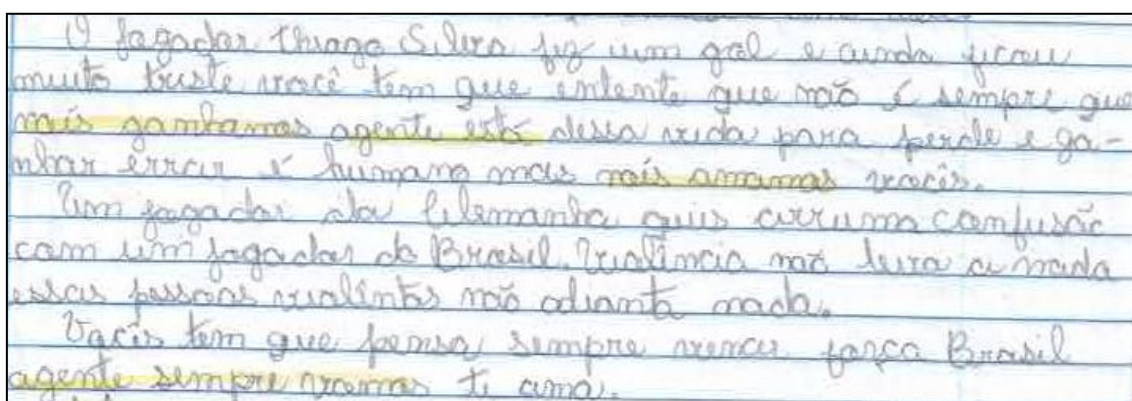 O jogador thiago Silva fiz um gol e ainda ficou
muito triste você tem que entente que não é sempre que
nóis ganhamos agente está dessa vida para perde e ga-
nhar errar é humano mas nóis amamos vocês.
Um jogador da Alemanha quis arruma confusão
com um jogador do Brasil. Violência não leva a nada
essas pessoas violintas não adianta nada.
Vocês tem que pensa sempre vencer força Brasil
agente sempre vamos ti ama.